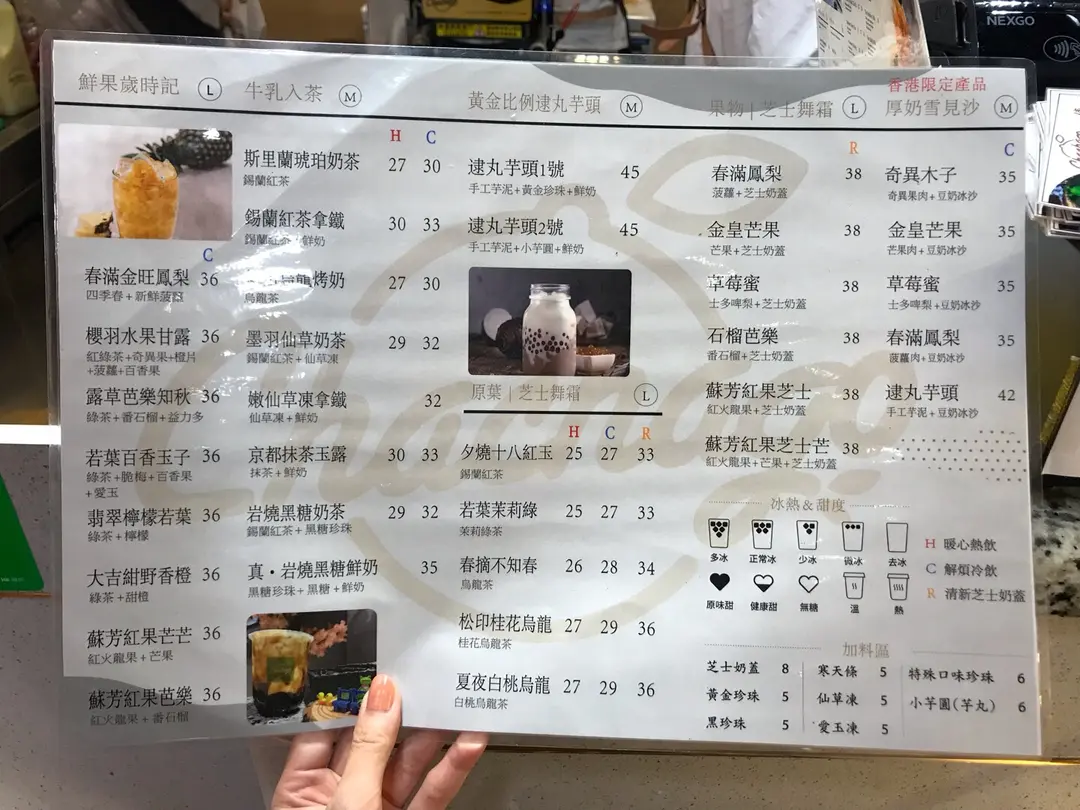 NEXGO
鮮果歲時記 L
C
春滿金旺鳳梨 36
四季春+新鮮菠蘿
櫻羽水果甘露 36
紅綠茶+奇異果+橙片
+菠蘿+百香果
露草芭樂知秋 36
綠茶+番石榴+益力多
若葉百香玉子 36
綠茶+脆梅+百香果
+愛玉
翡翠檸檬若葉 36
綠茶+檸檬
大吉紺野香橙 36
綠茶+甜橙
蘇芳紅果芒芒 36
紅火龍果+芒果
蘇芳紅果芭樂 36
紅火龍果+番石榴
牛乳入茶 M
H C
斯里蘭琥珀奶茶 27 30
錫蘭紅茶
錫蘭紅茶拿鐵 30 33
錫蘭紅茶+鮮奶
烤奶 27 30
烏龍茶
墨羽仙草奶茶 29 32
錫蘭紅茶+仙草凍
嫩仙草凍拿鐵 32
仙草凍+鮮奶
京都抹茶玉露 30 33
抹茶+鮮奶
岩燒黑糖奶茶 29 32
錫蘭紅茶+黑糖珍珠
真・岩燒黑糖鮮奶 35
黑糖珍珠+黑糖+鮮奶
黃金比例逮丸芋頭 M
逮丸芋頭1號 45
手工芋泥+黃金珍珠+鮮奶
逮丸芋頭2號 45
手工芋泥+小芋圓+鮮奶
原葉|芝士舞霜 L
H C R
夕燒十八紅玉 25 27 33
錫蘭紅茶
若葉茉莉綠 25 27 33
茉莉綠茶
春摘不知春 26 28 34
烏龍茶
松印桂花烏龍 27 29 36
桂花烏龍茶
夏夜白桃烏龍 27 29 36
白桃烏龍茶
果物|芝士舞霜 L
R
春滿鳳梨 38
菠蘿+芝士奶蓋
金皇芒果 38
芒果+芝士奶蓋
草莓蜜 38
士多啤梨+芝士奶蓋
石榴芭樂 38
番石榴+芝士奶蓋
蘇芳紅果芝士 38
紅火龍果+芝士奶蓋
蘇芳紅果芝士芒 38
紅火龍果+芒果+芝士奶蓋
香港限定產品
厚奶雪見沙 M
C
奇異木子 35
奇異果肉+豆奶冰沙
金皇芒果 35
芒果肉+豆奶冰沙
草莓蜜 35
士多啤梨+豆奶冰沙
春滿鳳梨 35
菠蘿肉+豆奶冰沙
逮丸芋頭 42
手工芋泥+豆奶冰沙
冰熱&甜度
多冰 正常冰 少冰 微冰 去冰
原味甜 健康甜 無糖 溫 熱
H 暖心熱飲
C 解煩冷飲
R 清新芝士奶蓋
加料區
芝士奶蓋 8 寒天條 5 特殊口味珍珠 6
黃金珍珠 5 仙草凍 5 小芋圓(芋丸) 6
黑珍珠 5 愛玉凍 5